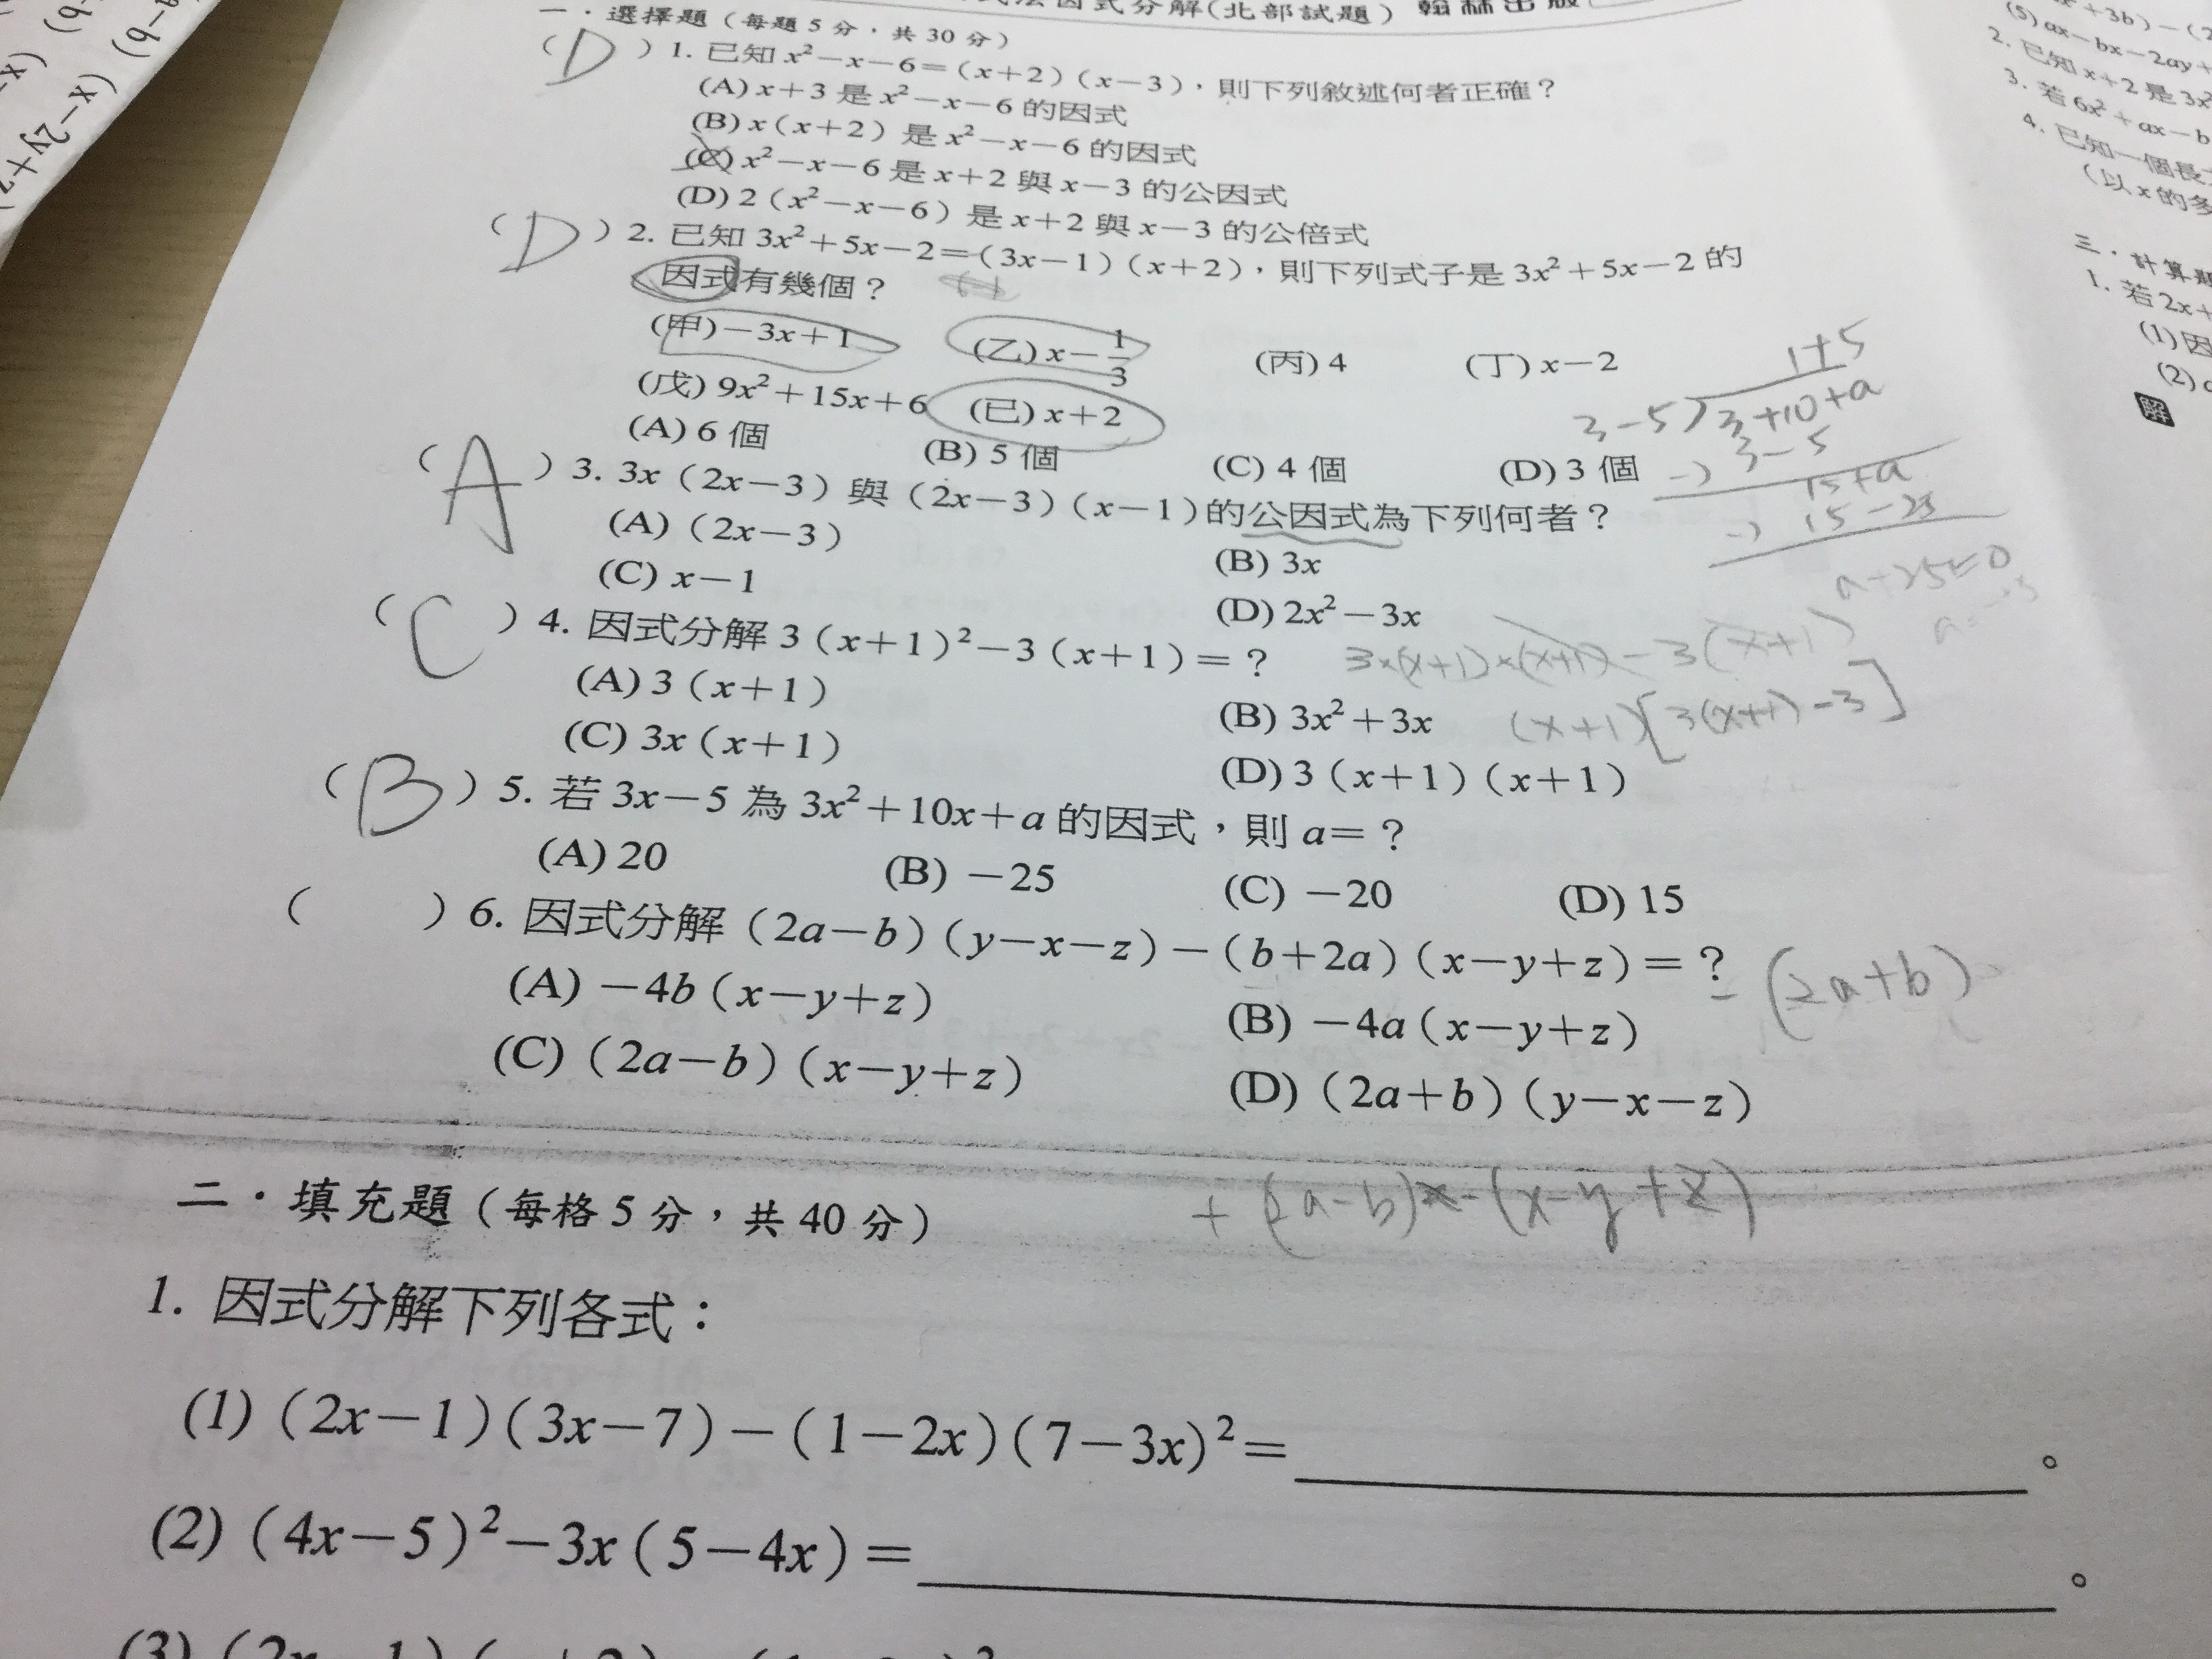 因式分解(北部試題) 翰林出版
一．選擇題（每題5分，共30分）
(D) 1. 已知 x²－x－6＝(x＋2)(x－3)，則下列敘述何者正確？
(A) x＋3 是 x²－x－6 的因式
(B) x(x＋2) 是 x²－x－6 的因式
(C) x²－x－6 是 x＋2 與 x－3 的公因式
(D) 2(x²－x－6) 是 x＋2 與 x－3 的公倍式
(D) 2. 已知 3x²＋5x－2＝(3x－1)(x＋2)，則下列式子是 3x²＋5x－2 的
因式有幾個？
(甲)－3x＋1 (乙) x－1/3 (丙) 4 (丁) x－2
(戊) 9x²＋15x＋6 (已) x＋2
(A) 6 個 (B) 5 個 (C) 4 個 (D) 3 個
1+5
3-5)3+10+a
-) 3-5
15+a
-) 15-25
a+25=0
(A) 3. 3x(2x－3) 與 (2x－3)(x－1) 的公因式為下列何者？
(A) (2x－3) (B) 3x
(C) x－1 (D) 2x²－3x
(C) 4. 因式分解 3(x＋1)²－3(x＋1)＝？
3×(x+1)×(x+1)-3(x+1)
(x+1)[3(x+1)-3]
(A) 3(x＋1) (B) 3x²＋3x
(C) 3x(x＋1) (D) 3(x＋1)(x＋1)
(B) 5. 若 3x－5 為 3x²＋10x＋a 的因式，則 a＝？
(A) 20 (B) －25 (C) －20 (D) 15
( ) 6. 因式分解 (2a－b)(y－x－z)－(b＋2a)(x－y＋z)＝？
-(2a+b)
(A) －4b(x－y＋z) (B) －4a(x－y＋z)
(C) (2a－b)(x－y＋z) (D) (2a＋b)(y－x－z)
+(2a-b)x-(x-y+z)
二．填充題（每格5分，共40分）
1. 因式分解下列各式：
(1) (2x－1)(3x－7)－(1－2x)(7－3x)²＝ 。
(2) (4x－5)²－3x(5－4x)＝ 。
(3)
(5) ax－bx－2ay＋
2. 已知 x＋2 是 3x²
3. 若 6x²＋ax－b
4. 已知一個長
(以 x 的多
三．計算題
1. 若 2x＋
(1) 因
(2)
解